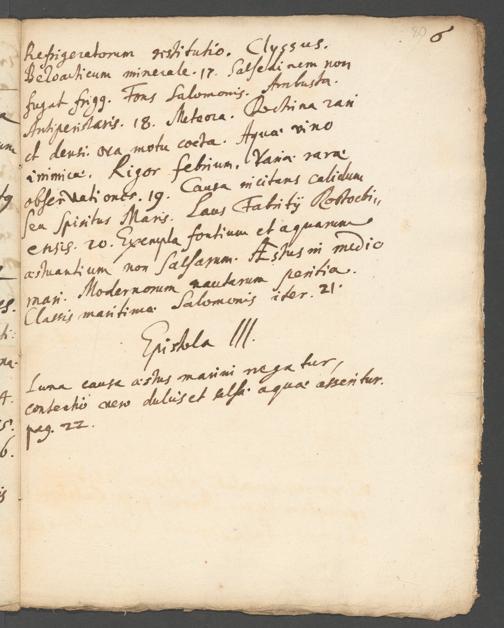 6
Refrigeratorum restitutio. Clyssus.
Bezoarticum minerale. 17. Salsedinem non
fugat frigg. Fons Salomonis. Ambusta.
Antiperistasis. 18. Meteora. Doctrina rari
et densi. ova motu cocta. Aqua vino
inimica. Rigor febrium. Varia rara
observationes. 19. Causa incitans calidum
seu Spiritus Maris. Laus Fabritij Rostochi„
ensis. 20. Exempla fontium et aquarum
æstuantium non salsarum. Æstus in medio
mari. Modernorum nautarum peritia.
Classis maritima Salomonis iter. 21.
Epistola III.
Luna causa æstus marini negatur,
contentio vero dulcis et salsæ aquæ asseritur.
pag. 22.